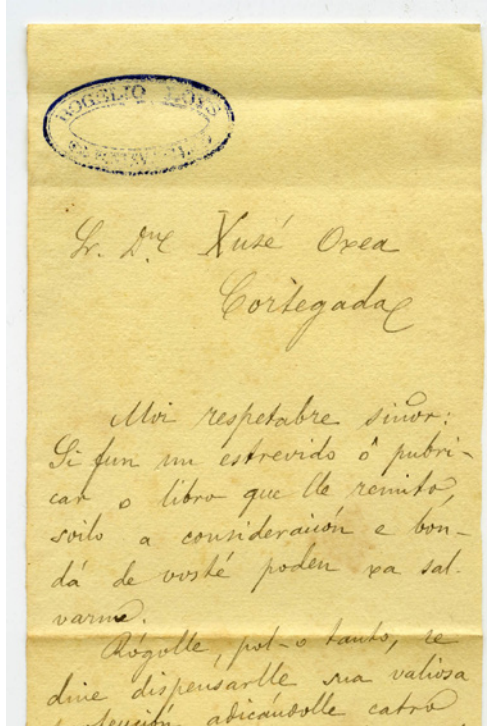 ROGELIO LOIS
Sr. Dne Xusé Oxea
Cortegada
Moi respetabre siñor:
Si fun un estrevido ô pubri-
car o libro que lle remito,
soilo a consideraiión e bon-
dá de vosté poden xa sal-
varme.
Rógolle, pol-o tanto, se
dine dispensarlle sua valiosa
atención adicándolle catro